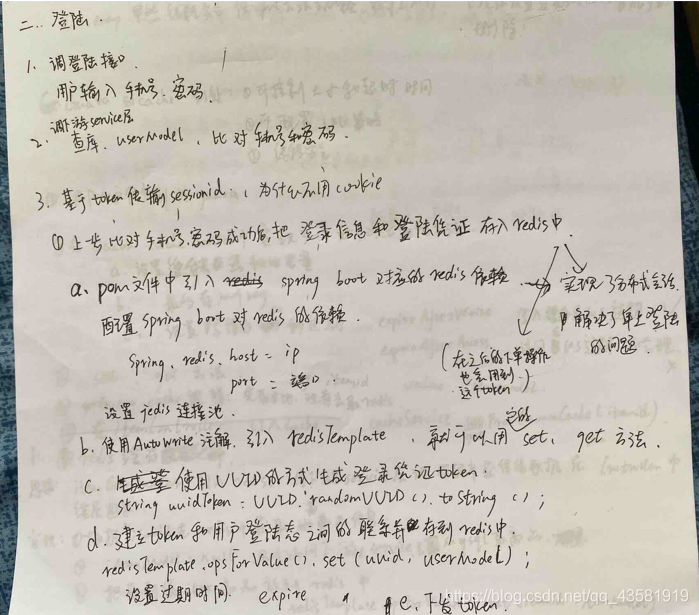 二. 登陆.
1. 调登陆接口.
用户输入手机号、密码
调下游service层
2. 查库. userModel, 比对手机号和密码.
3. 基于token传输sessionid., 为什么不用cookie
① 上步比对手机号、密码成功后,把 登录信息和登陆凭证 存入redis中.
a. pom文件中引入 redis spring boot 对应的redis依赖. 实现了分布式会话.
配置spring boot对redis的依赖. 解决了单点登陆
的问题.
spring. redis. host = ip
port = 端口.
(在之后的下单操作
也会用到.)
这个token
设置jedis连接池.
它的
b. 使用Autowrite注解. 引入 redisTemplate, 就可以用 set、get方法.
c. 使用UUID的方式生成登录凭证token.
string uuidToken = UUID.randomUUID().toString();
d. 建立token和用户登陆态之间的联系并存到redis中.
redisTemplate.opsForValue().set(uuid, userModel);
设置过期时间. expire
e. 下发token.
https://blog.csdn.net/qq_43581919